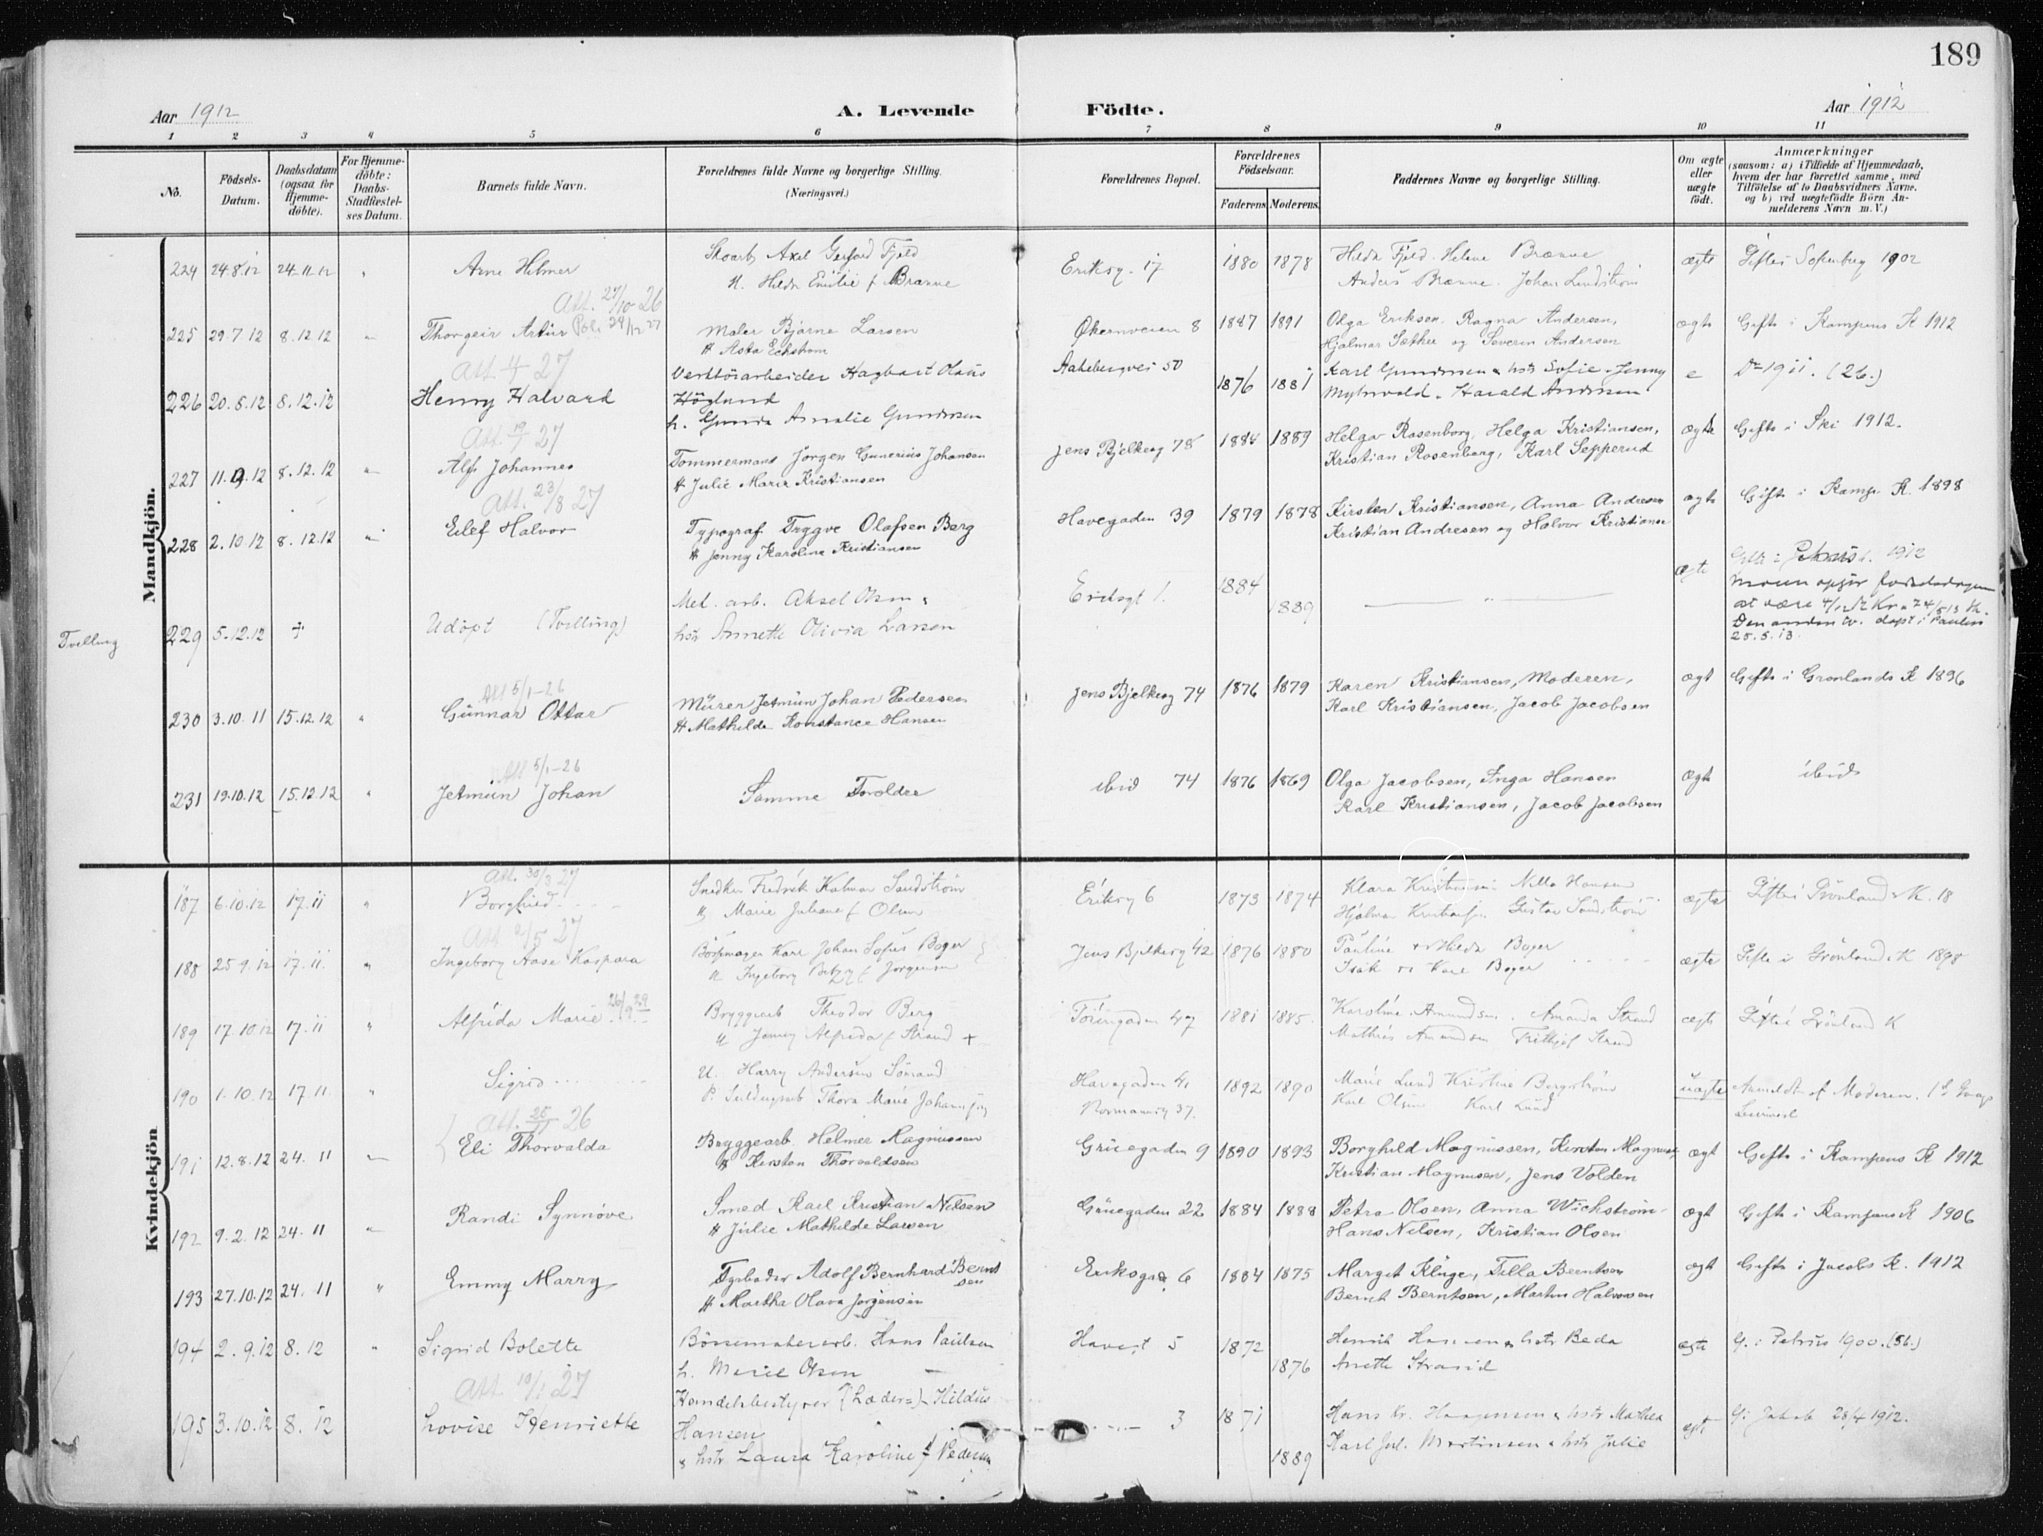 189
Aar 1912 A. Levende Födte. Aar 1912
1 2 3 4 5 6 7 8 9 10 11
No.
Födsels-Datum.
Daabsdatum (ogsaa for Hjemme-döbte).
For Hjemme-döbte: Daabs-Stadfæstel-ses Datum.
Barnets fulde Navn.
Forældrenes fulde Navne og borgerlige Stilling.
(Næringsvei.)
Forældrenes Bopæl.
Forældrenes Födselsaar.
Faderens. Moderens.
Faddernes Navne og borgerlige Stilling.
Om ægte eller uægte födt.
Anmærkninger
(saasom: a) i Tilfælde af Hjemmedaab, hvem der har forrettet samme, med Tilföielse af to Daabsvidners Navne, og b) ved uægtefödte Börn An-melderens Navn m. V.)
Mandkjön.
224 24.8.12 24.11.12 " Arne Hilmer Axel Fjeld Eriksg. 17 1880 1878 Hilda Fjeld. Helene Brænne ægte 1902
H. Hilda Emilie f Brænne Anders Brænne. Johan Lundström
Att. 27/10-26
225 29.7.12 8.12.12 " Thorgeir Artur Pol. 24/12 27 Maler Bjarne Larsen Økernveien 8 1887 1891 Olga Eriksen. Ragna Andersen, ægte Gifte i Kampens K 1912
H Asta Eckstrom Hjalmar Sæther og Severin Andersen
Att 4/4 27
226 20.8.12 8.12.12 Henry Halvard Verktöiarbeider Hagbart Olaus 50 1876 1881 Karl Gundersen & hstr Sofie. Jenny Do 1911. (26.)
Höglund Harald Andersen
h. Gunda Amalie Gundersen
Att. 27
227 11.9.12 8.12.12 " Alf Johannes Tommermand Jorgen Gunerius Johansen Jens Bjelkesg 78 1884 1889 Helga Rosenborg, Helga Kristiansen, ægte Gifte i Ski 1912.
H Julie Marie Kristiansen Kristian Rosenberg, Karl Sepperud
Att. 23/8 27
228 2.10.12 8.12.12 " Eilef Halvor Typograf Tryggve Olafsen Berg Havegaden 39 1879 1878 Kirsten Kristiansen, Anna Andresen ægte Gifte i Kamp K. 1898
H Jenny Karoline Kristiansen Kristian Andresen og Halvor Kristianse
Tvilling 229 5.12.12 + Udöpt (Tvilling) Met. arb. Aksel Olsen & Eriksgt 1. 1884 1889 " ægte 1912
hstr Annette Olivia Larsen
Den anden tv. døpt i Paulus
25.5.13.
Att 5/1-26
230 3.10.11 15.12.12 " Gunnar Ottar Murer Jetmun Johan Pedersen Jens Bjelkesg 74 1876 1879 Karen Kristiansen, Moderen, ægt Gifte i Gronlands K 1896
H Mathilde Konstance Hansen Karl Kristiansen, Jacob Jacobsen
Att 5/1-26
231 19.10.12 15.12.12 " Jetmun Johan Samme Foroldre ibid 74 1876 1869 Olga Jacobsen, Inga Hansen ægt ibid
Karl Kristiansen, Jacob Jacobsen
Kvindekjön
Att. 30/3 27
187 6.10.12 17.11 " Borghild Snedker Fredrik Kalmar Sandström Eriksg 6 1873 1874 Klara Nilla Hansen ægte Gifte i Grönland K. 18
H Marie Juliane f Olsen Hjalmar Gustav Sandström
Att 27
188 25.9.12 17.11. " Ingeborg Aase Kaspara Karl Johan Sofus Boger Jens Bjelkesg 42 1876 1880 Pauline & Hilda Boger ægte Gifte i Grönland K 1898
H Ingeborg f Jorgensen Isak & Karl Boger
189 17.10.12 17.11 " Alfrida Marie 26/9 29 Bryggearb Theodor Berg Töiengaden 47 1881 1885 Karoline Amundsen. Amanda Strand ægte Gifte i Grönland K
H Jenny Alfrida f Strand + Mathias Amundsen Frithjof Strand
190 1.10.12 17.11 " Sigrid U. Harry Andersen Sömand Havegaden 41 1892 1890 Marie Lund Kristine Bergström uægte Anmeldt af Moderen.
Thora Marie Normannsg 37. Karl Olsen Karl Lund
Att. 25/11 26
191 12.8.12 24.11 " Eli Thorvalda Bryggearb. Helmer Magnussen Grüegaden 9 1890 1893 Borghild Magnussen, Kirsten Magnus ægt Gifte i Kampens K 1912
H Kirsten Thorvaldsen Kristian Magnusen, Jens Volden
192 9.2.12 24.11 " Randi Synnöve Smed Karl Kristian Nilsen Grüegaden 22 1884 1888 Petra Olsen, Anna Wickström ægt Gifte i Kampens K 1906
H Julie Mathilde Larsen Hans Nilsen, Kristian Olsen
193 27.10.12 24.11 " Emmy Marry Adolf Bernhard Bernt sen Eriksga 6 1884 1875 Margit Kluge, Tilla Berntsen ægt Gifte i Jacobs K. 1912
H Martha Olava Jorgensen Bernt Berntsen, Martin Halvorsen
194 2.9.12 8.12 " Sigrid Bolette Börstemakerarb. Hans Paulsen Havegt 5 1872 1876 Henrik Hansen & hstr Beda ægte G. i Petrus 1900. (56.)
h. Marie Olsen Anette Strand
Att 10/1 27
195 3.10.12 8.12 Lovise Henriette Handelsbestyrer (Læder=) Hildus 3 1871 1889 Hans Kr. Haagensen & hstr Mathea ægt G. i Jakob 28/4 1912.
Hansen Karl Jul. Martinsen & hstr Julie
& hstr. Laura Karoline f Pedersen